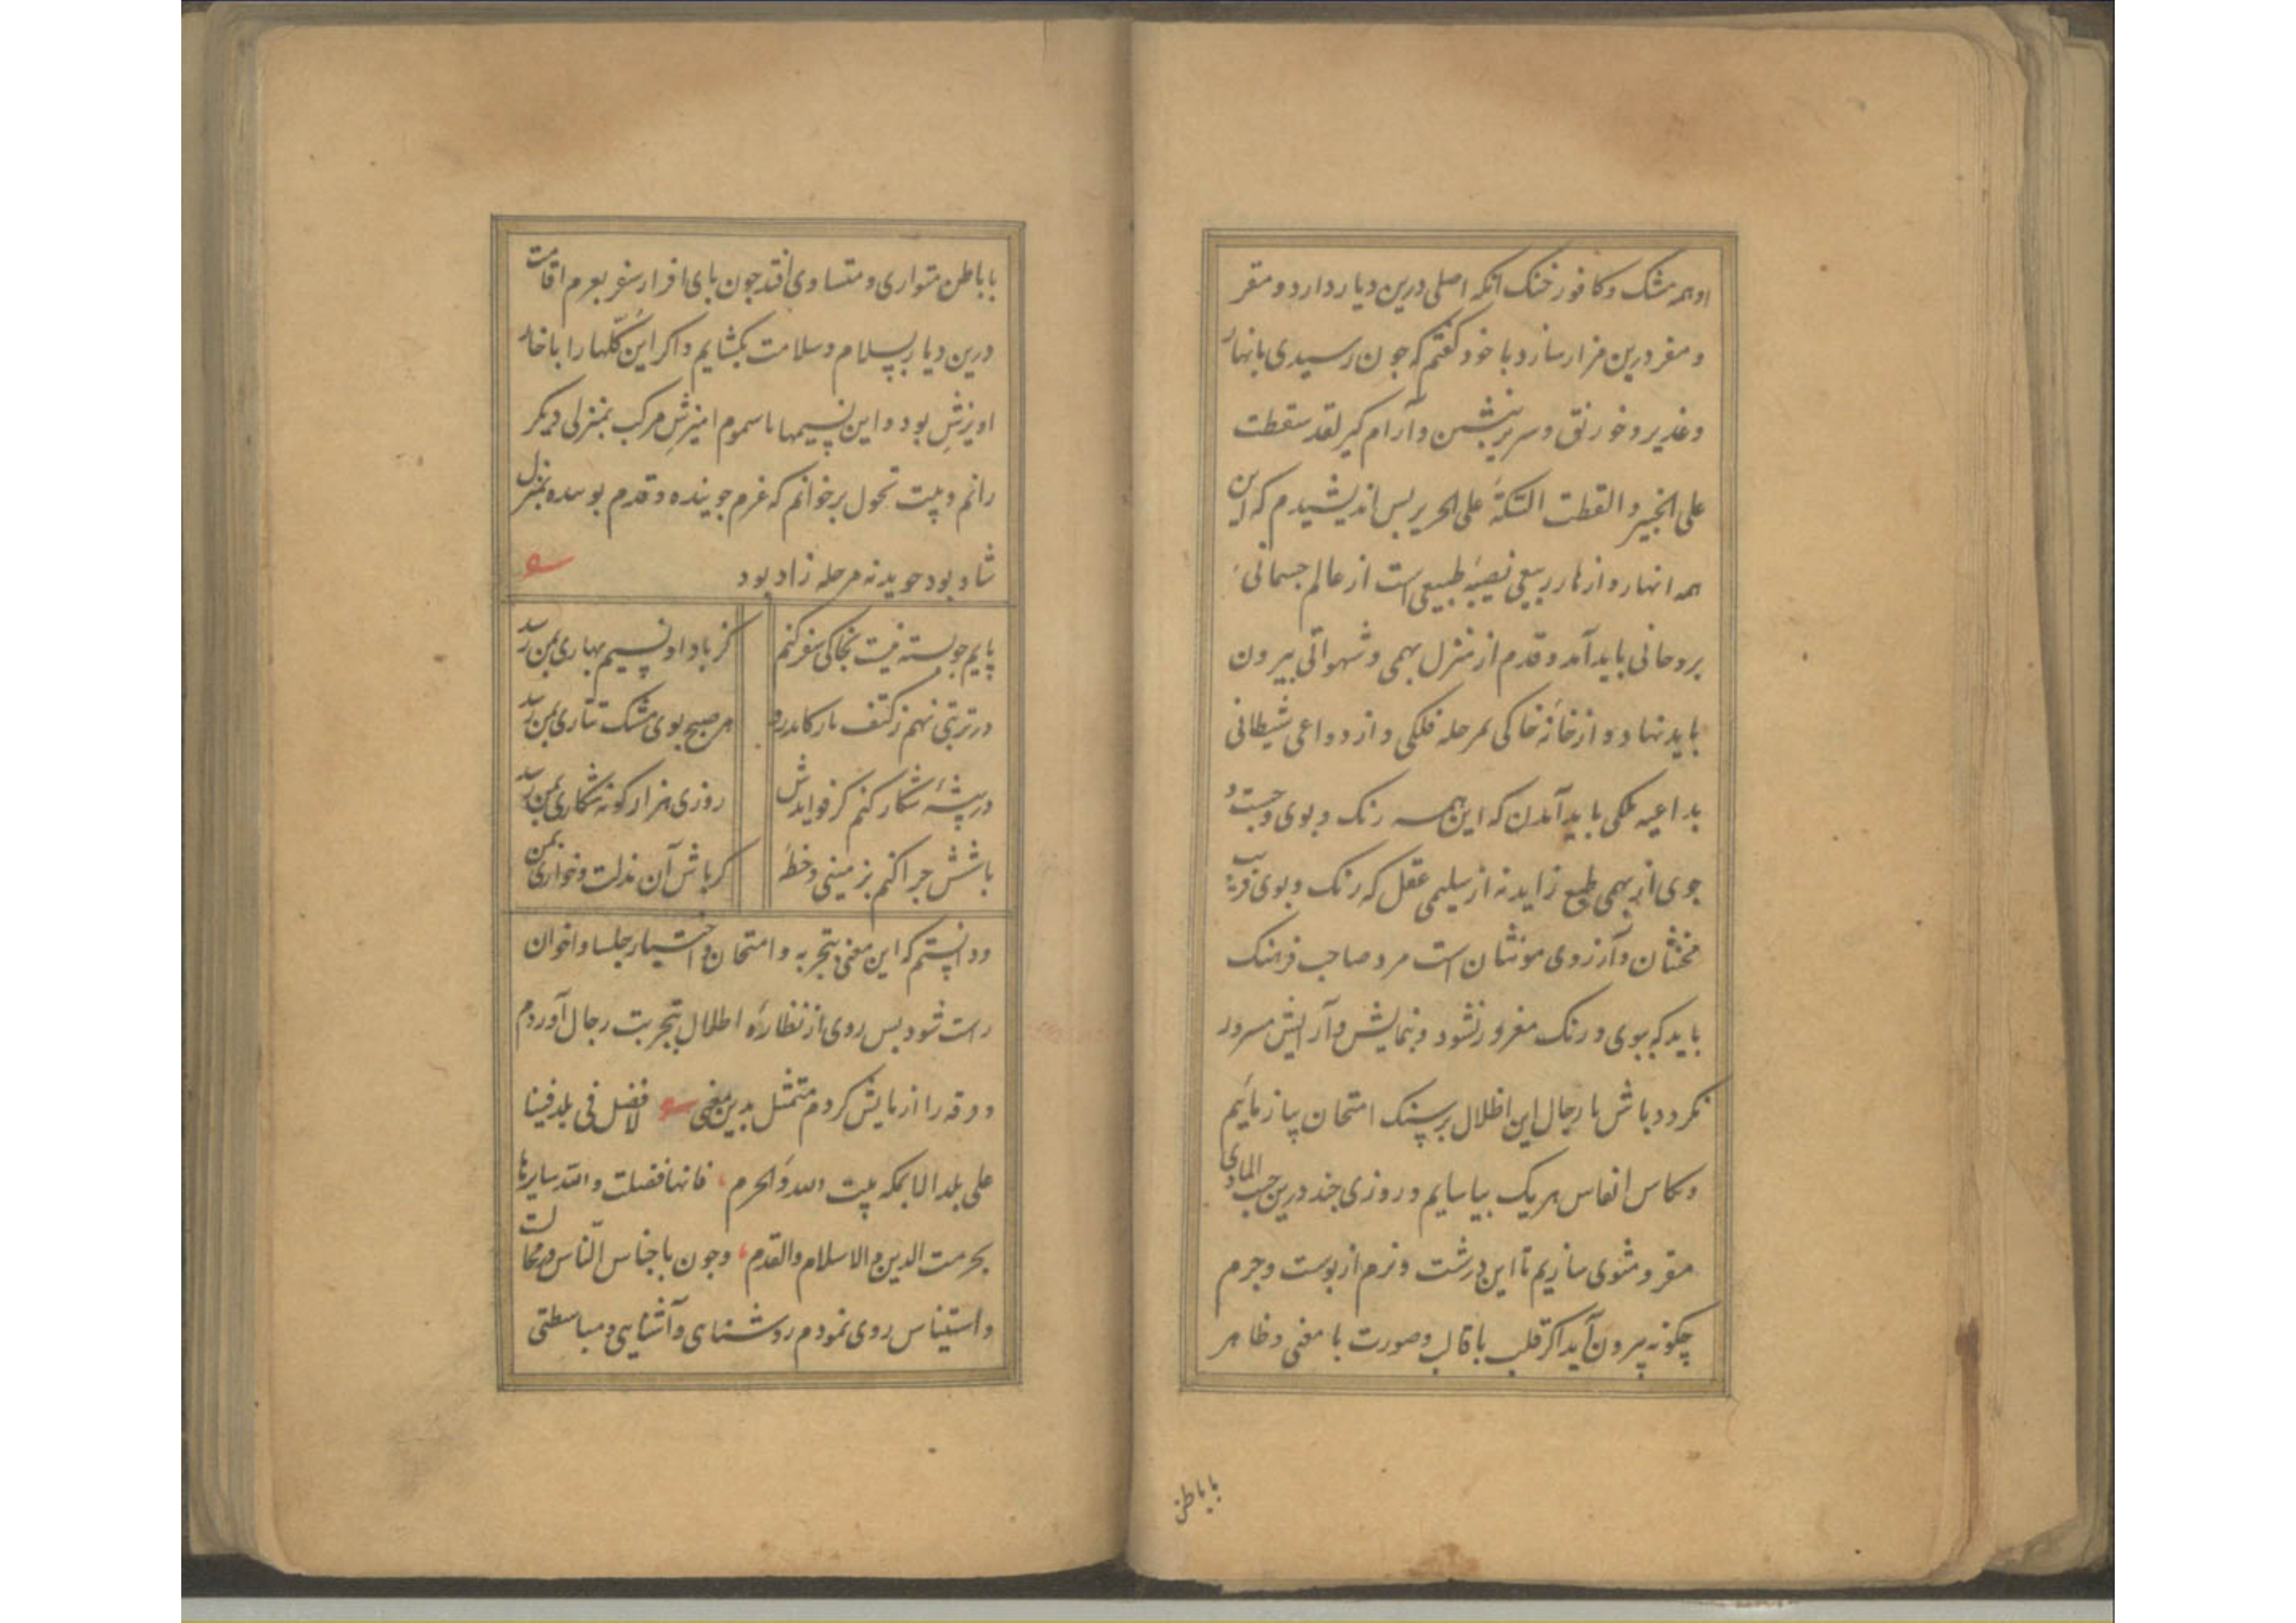 او همه مشک و کافور خنک آنکه اصلی درین دیار دارد و مقر
و مفر درین مزار سازد با خود گفتم که چون رسیدی بانهار
و غدیر و خورنق و سریر بنشین و آرام گیر لقد سقطت
علی الخبیر و القطت التکة علی الحریر پس اندیشیدم که این
همه انهار و ازهار ربیعی نصیبه طبیعی است از عالم جسمانی
بروحانی باید آمد و قدم از منزل بهمی و شهوانی بیرون
باید نهاد و از خانه خاکی بمرحله فلکی و از دواعی شیطانی
بداعیه ملکی باید آمدن که این همه رنک و بوی و جست و
جوی از بهمی طبع زاید نه از سلیمی عقل که رنک و بوی فریب
مخنثان و آرزوی مونثان است مرد صاحب فرهنک
باید که ببوی و رنک مغرور نشود و بنمایش و آرایش مسرور
نکردد باش تا رجال این اطلال بر سنک امتحان بیازمائیم
و کاس انفاس هر یک بیاساییم و روزی چند درین
مقر و مثوی سازیم تا این درشت و نرم از پوست و جرم
چکونه بیرون آید اکر قلب با قالب و صورت با معنی و ظاهر
با باطن
با باطن متواری و متساوی افتد چون پای افزار سفر بعزم اقامت
درین دیار بسلام و سلامت بکشایم و اکر این کلها را با خار
اویزش بود و این نسیمها با سموم امیزش مرکب بمنزلی دیکر
رانم و بیت تحول برخوانم که عزم جوینده و قدم پوینده بمنزل
شاد بود جوینده مرحله زاد بود
پایم جو بسته نیست بخاکی سفر کنم
کز باد او نسیم بهاری بمن رسد
در تربتی نهم ز کتف بار کاندرو
هر صبح بوی مشک تتاری بمن رسد
در بیشه شکار کنم کز فوایدش
روزی هزار کونه شکاری بمن رسد
باشش چرا کنم بزمینی و خطه
کز باش آن مذلت و خواری بمن
و دانستم که این معنی بتجربه و امتحان و اختیار جلسا و اخوان
راست شود پس روی از نظاره اطلال بتجربت رجال آوردم
و ورقه را ازمایش کردم متمثل بدین معنی لا فضل فی بلد فینا
علی بلد الا بمکه بیت الله و الحرم فانها فضلت والله سایرها
بحرمت الدین و الاسلام والقدم و چون باجناس الناس در مخالت
و استیناس روی نمودم روشنایی و آشنایی و مباسطتی